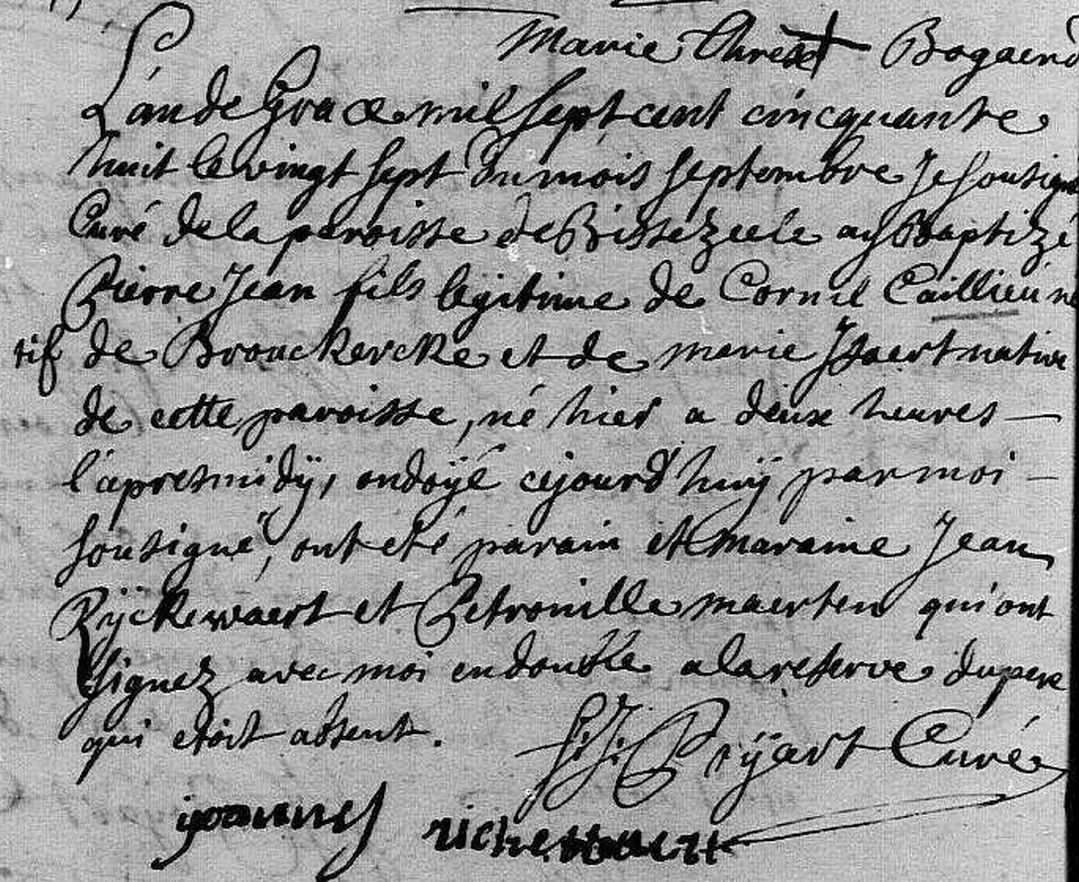 Marie Theres Bogaerd
L'an de Grace mil sept cent cincquante
huit le vingt sept du mois septembre Je sousigné
Curé de la paroisse de Bissezeele ay Baptizé
Pierre Jean fils legitime de Cornil Caillieu na
tif de Brouckercke et de marie Isaert native
de cette paroisse, né hier a deux heures
l'apresmidÿ, ondoÿé cejourd'huÿ par moi
sousigné, ont eté parain et maraine Jean
Rÿckewaert et Petronille maerten qui ont
signez avec moi en double a la reserve du pere
qui etoit absent.
Prÿart Curé
joannes richewaert